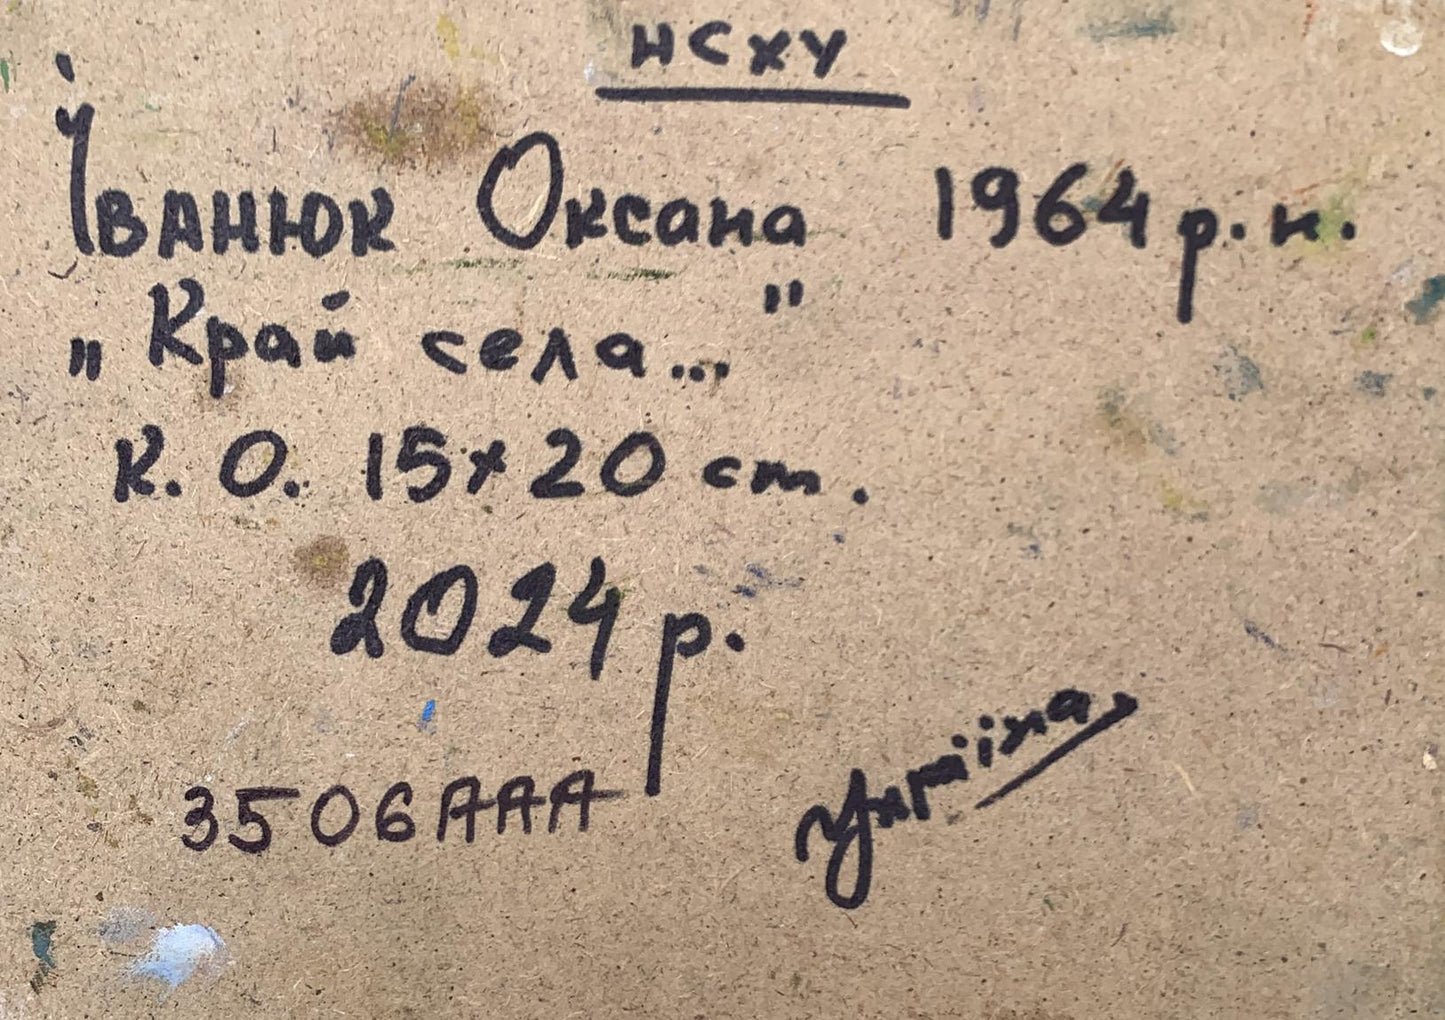 НСХУ
Іванюк Оксана 1964 р.н.
„Край села..."
к. О. 15х20 ст.
2024 р.
3506ААА
Україна